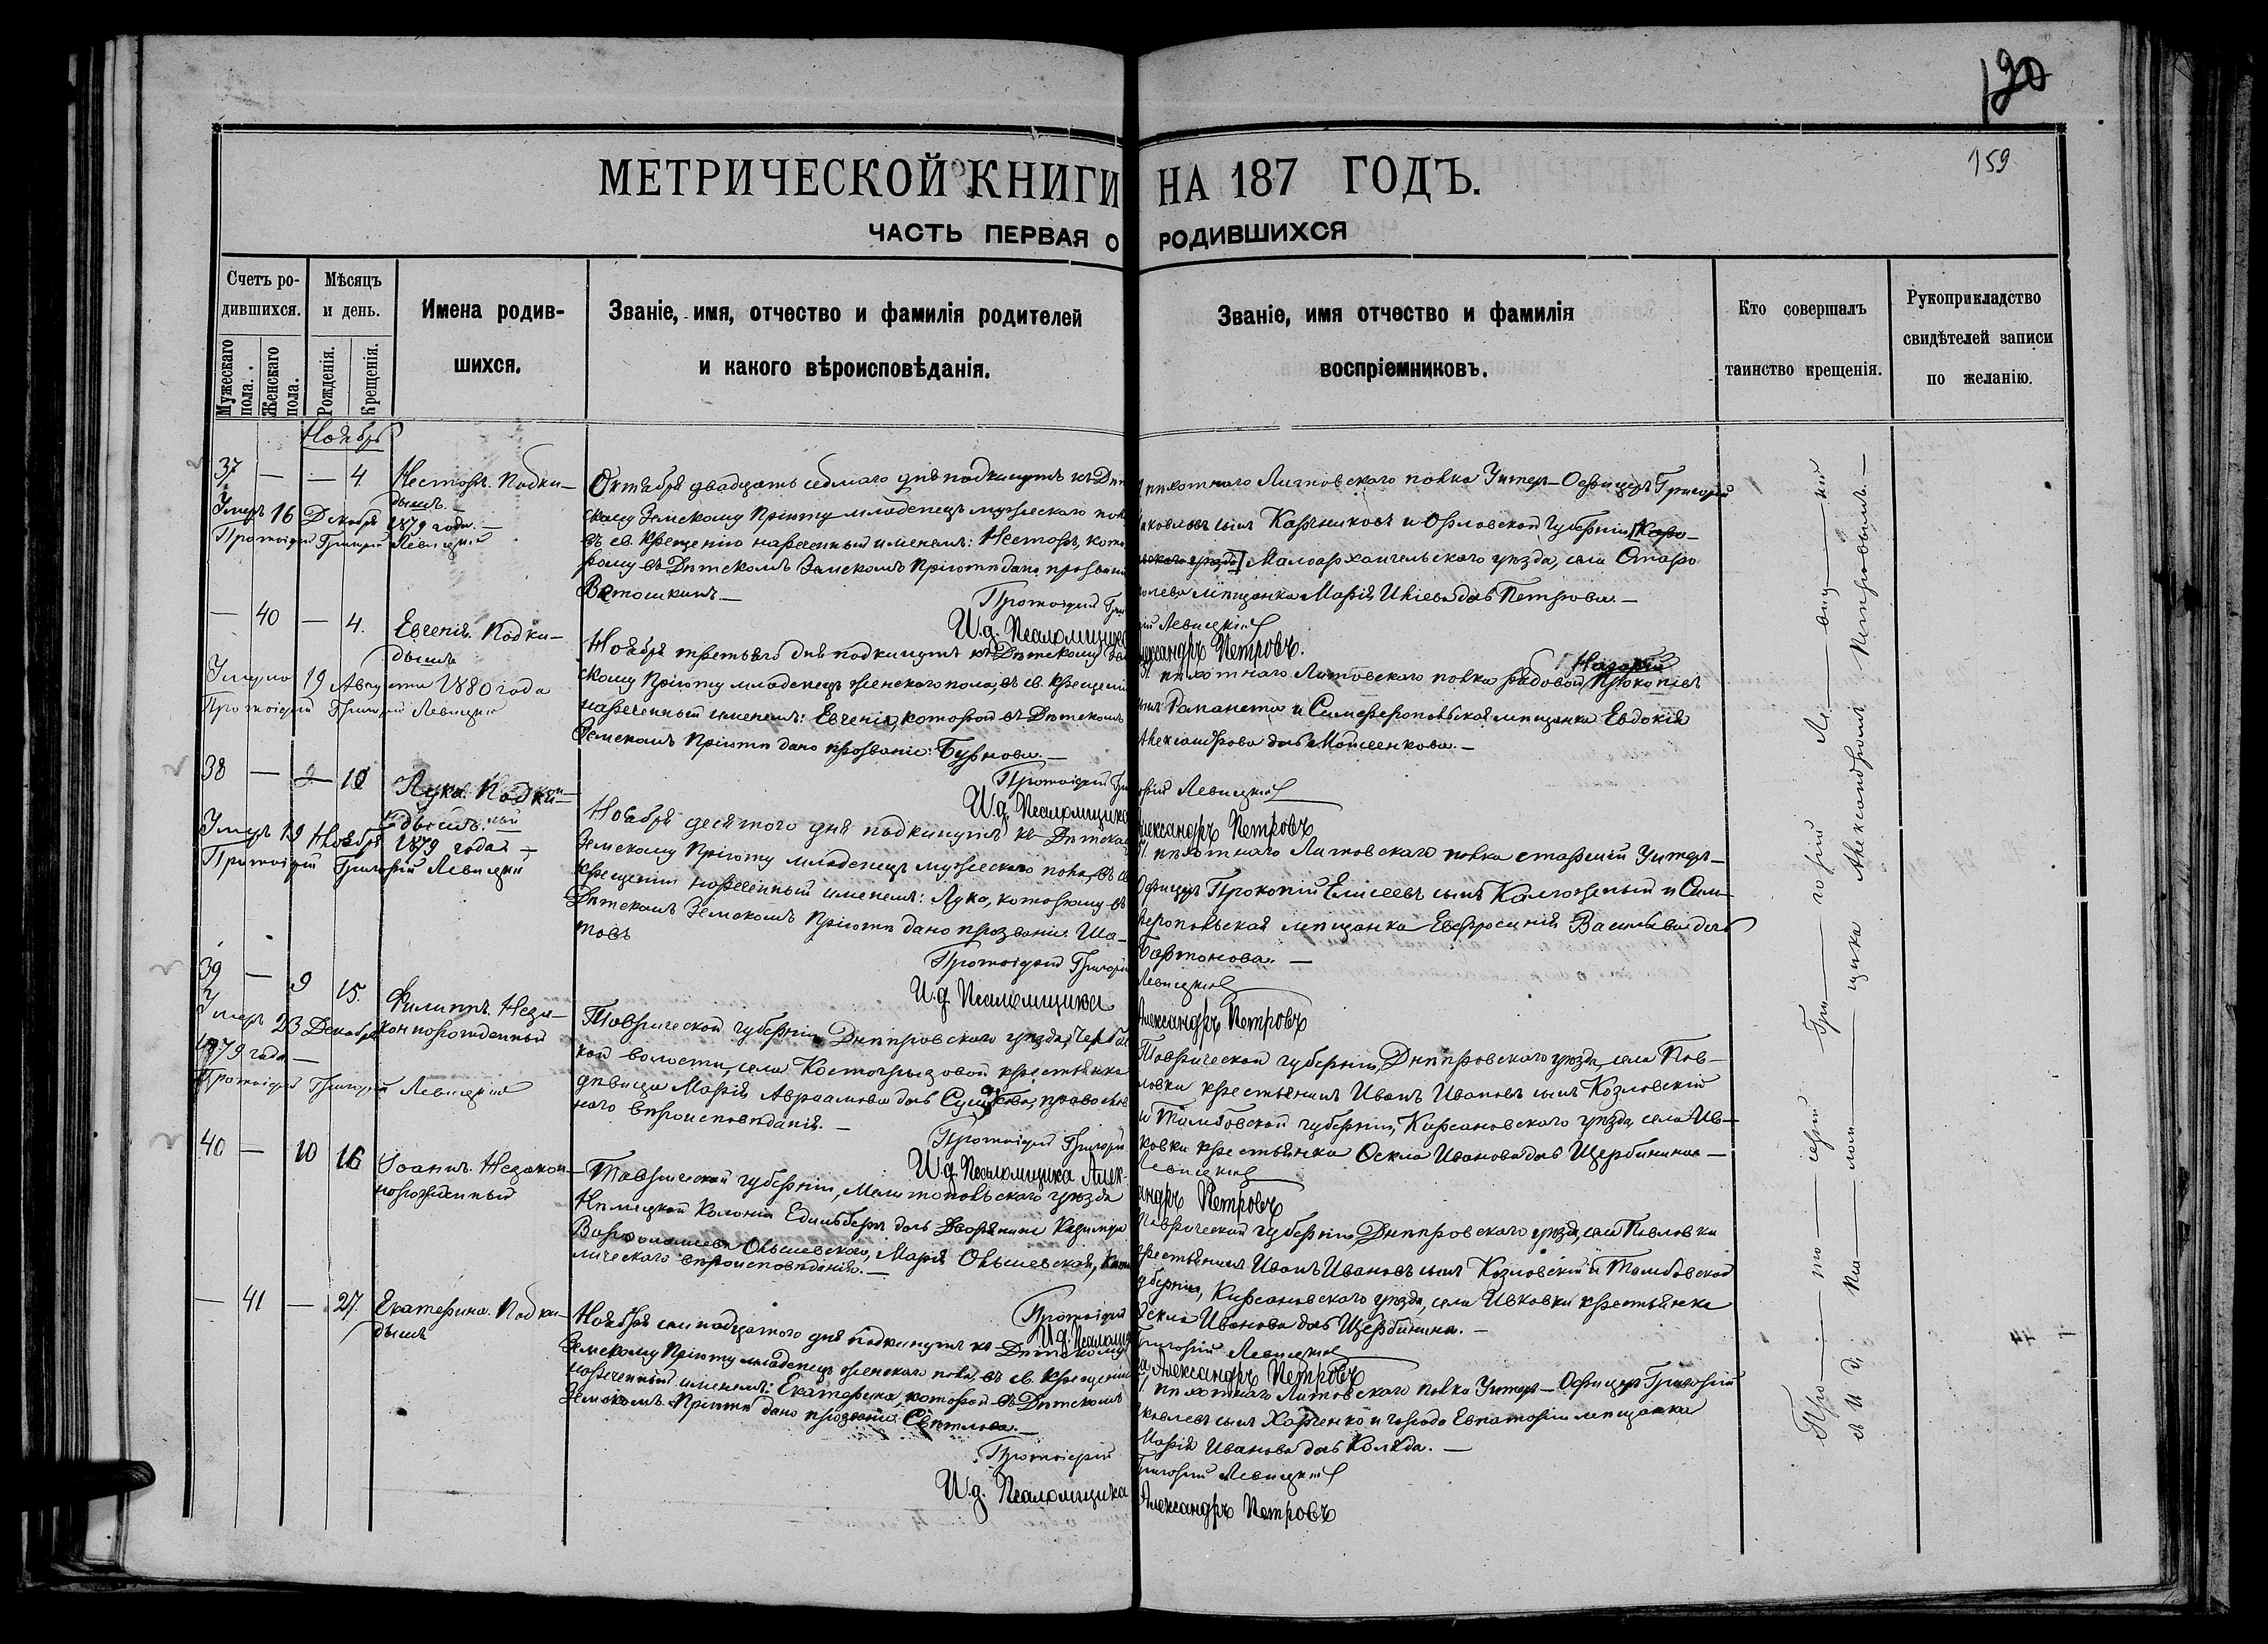 120
159
МЕТРИЧЕСКОЙ КНИГИ НА 187 ГОДЪ.
ЧАСТЬ ПЕРВАЯ О РОДИВШИХСЯ
Счетъ ро-
дившихся.
Мужескаго пола.
Женскаго пола.
Мѣсяцъ
и день.
Рожденія.
Крещенія.
Имена родив-
шихся.
Званіе, имя, отчество и фамилія родителей
и какого вѣроисповѣданія.
Званіе, имя отчество и фамилія
воспріемниковъ.
Кто совершалъ
таинство крещенія.
Рукоприкладство
свидѣтелей записи
по желанію.
Ноябрь
37 — — 4
Несторъ. Подки-
дышъ.
Умеръ 16 Декабря 1879 года. —
Протоіерей Григорій Левицкій
Октября двадцать седьмаго дня подкинутъ къ Дѣт
скому Земскому Пріюту младенецъ мужескаго пол
въ св. крещеніи нареченный именемъ: Несторъ, кото
рому въ Дѣтскомъ Земскомъ Пріютѣ дано прозваніе
Ветошкинъ. —
Протоіерей Гри
И.д. Псаломщика
пѣхотнаго Литовскаго полка Унтеръ-Офицеръ Григорій
Яковлевъ сынъ и Орловской Губерніи
Малоархангельскаго уѣзда, села
мѣщанка Марія дочь Петрова. —
рій Левицкій
Александръ Петровъ.
— 40 — 4.
Евгенія. Подки-
дышъ
Умерла 19 Августа 1880 года
Протоіерей Григорій Левицкій
Ноября третьяго дня подкинутъ къ Дѣтскому Зем
скому Пріюту младенецъ женскаго пола, въ св. крещеніи
нареченный именемъ: Евгенія, которой въ Дѣтскомъ
Земскомъ Пріютѣ дано прозваніе: Бурнова. —
Протоіерей Гри
И.д. Псаломщика
пѣхотнаго Литовскаго полка рядовой Прокопіевъ
сынъ и Симферопольская мѣщанка Евдокія
Александрова дочь Мотиенкова. —
горій Левицкій
Александръ Петровъ
38 — 10
Лука. Подки-
дышъ.
Умеръ 19 Ноября 1879 года —
Протоіерей Григорій Левицкій
Ноября десятого дня подкинутъ къ Дѣтском
Земскому Пріюту младенецъ мужескаго пола, въ св
крещеніи нареченный именемъ: Лука, которому въ
Дѣтскомъ Земскомъ Пріютѣ дано прозваніе Ша-
товъ
Протоіерей Григорій
И.д. Псаломщика
пѣхотнаго Литовскаго полка старшій Унтеръ-
Офицеръ Прокопій Елисеевъ сынъ и Сим-
феропольская мѣщанка Евфросинія Васильева дочь
Бартонова. —
Левицкій
Александръ Петровъ
39 — 9 15.
Филиппъ. Неза-
коннорожденный
Умеръ 23 Декабря
1879 года —
Протоіерей Григорій Левицкій
Таврической губерніи Днѣпровскаго уѣзда,
кой волости, села Костогрызовой крестьянка
дѣвица Марія Авраамова дочь православ
наго вѣроисповѣданія. —
Протоіерей Григорій
И.д. Псаломщика Алек-
Таврической губерніи, Днѣпровскаго уѣзда, села Пав-
ловки крестьянинъ Иванъ Ивановъ сынъ Козловскій
и Тамбовской губерніи, Кирсановскаго уѣзда, села Ив-
ковки крестьянка Оекла Иванова дочь Щербинина —
Левицкій
андръ Петровъ
40 — 10 16
Іоаннъ. Незакон-
норожденный
Таврической губерніи, Мелитопольскаго уѣзда
Нѣмецкой Колоніи дочь Дворянина Казимира
Варфоломеева Ольшевскаго, Марія Ольшевская, Като
лическаго вѣроисповѣданія. —
Протоіерей
И.д. Псаломщ
Таврической губерніи, Днѣпровскаго уѣзда, села Павловки
крестьянинъ Иванъ Ивановъ сынъ Козловскій и Тамбовской
губерніи, Кирсановскаго уѣзда, села Ивковки крестьянка
Оекла Иванова дочь Щербинина. —
Григорій Левицкій
Александръ Петровъ
— 41 — 27.
Екатерина. Подки-
дышъ
Ноября дня подкинутъ къ Дѣтскому
Земскому Пріюту младенецъ женскаго пола, въ св. крещеніи
нареченный именемъ: Екатерина, которой въ Дѣтскомъ
Земскомъ Пріютѣ дано прозваніе: Свѣтлова. —
Протоіерей
И.д. Псаломщика
пѣхотнаго Литовскаго полка Унтеръ-Офицеръ Григорій
Яковлевъ сынъ Харченко и города Евпаторіи мѣщанка
Марія Иванова дочь Коляда. —
Григорій Левицкій
Александръ Петровъ
Про — то — іерей Гри — горій Ле — виц — кій
съ И. д. Пса — лом — щика Александромъ Петровымъ. —